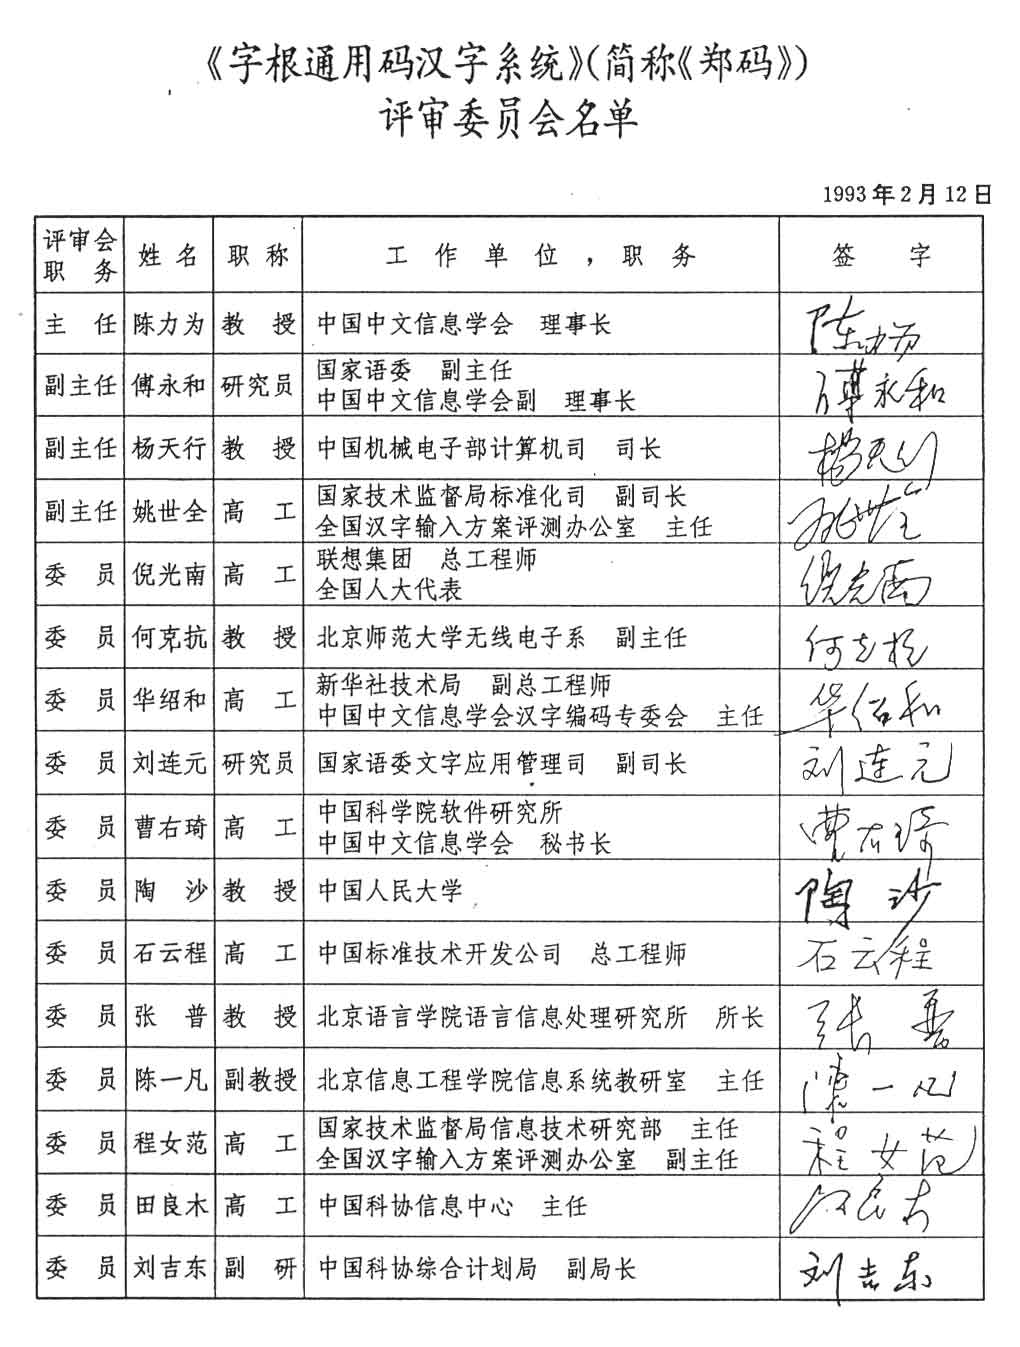 《字根通用码汉字系统》(简称《郑码》)
评审委员会名单
1993年2月12日
评审会职务 姓名 职称 工作单位，职务 签字
主任 陈力为 教授 中国中文信息学会 理事长 陈力为
副主任 傅永和 研究员 国家语委 副主任
中国中文信息学会副 理事长 傅永和
副主任 杨天行 教授 中国机械电子部计算机司 司长 杨天行
副主任 姚世全 高工 国家技术监督局标准化司 副司长
全国汉字输入方案评测办公室 主任 姚世全
委员 倪光南 高工 联想集团 总工程师
全国人大代表 倪光南
委员 何克抗 教授 北京师范大学无线电子系 副主任 何克抗
委员 华绍和 高工 新华社技术局 副总工程师
中国中文信息学会汉字编码专委会 主任 华绍和
委员 刘连元 研究员 国家语委文字应用管理司 副司长 刘连元
委员 曹右琦 高工 中国科学院软件研究所
中国中文信息学会 秘书长 曹右琦
委员 陶沙 教授 中国人民大学 陶沙
委员 石云程 高工 中国标准技术开发公司 总工程师 石云程
委员 张普 教授 北京语言学院语言信息处理研究所 所长 张普
委员 陈一凡 副教授 北京信息工程学院信息系统教研室 主任 陈一凡
委员 程女范 高工 国家技术监督局信息技术研究部 主任
全国汉字输入方案评测办公室 副主任 程女范
委员 田良木 高工 中国科协信息中心 主任
委员 刘吉东 副研 中国科协综合计划局 副局长 刘吉东